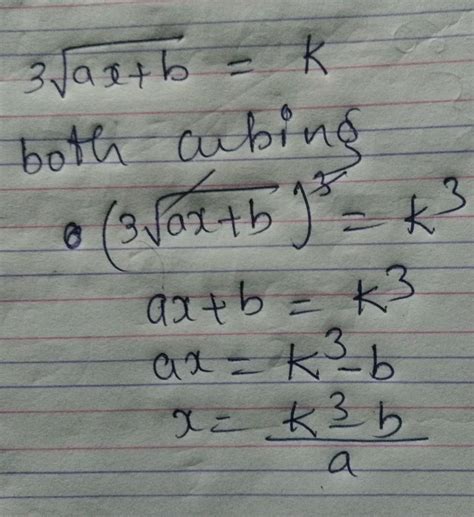 3√ax+b = K
both cubing
(3√ax+b)³ = K³
ax+b = K³
ax = K³-b
x = K³-b
a